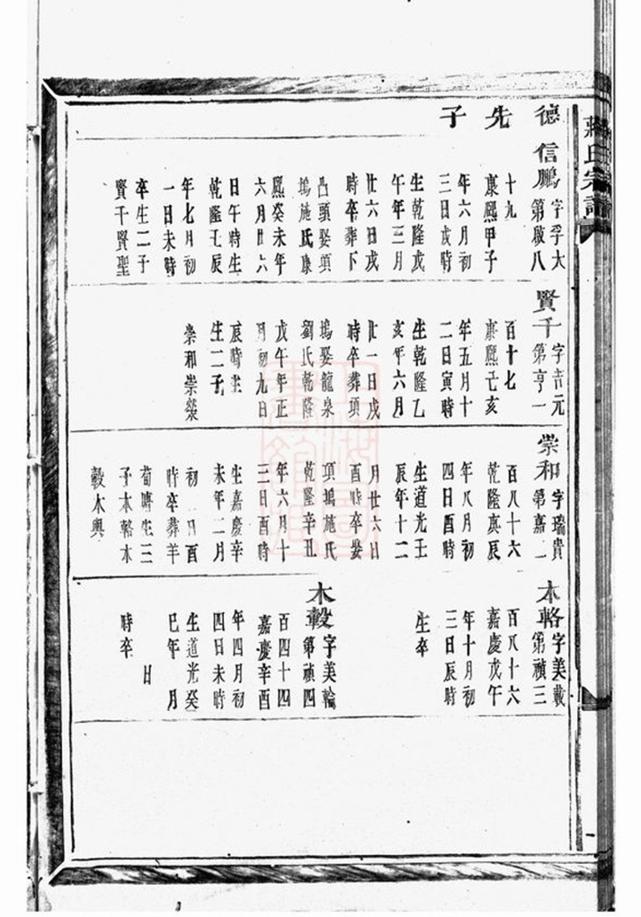 蔣氏宗譜
德先子
信鵬 字孚大
第啟八
十九
康熙甲子
年六月初
三日戌時
生乾隆戊
午年三月
廿六日戌
時卒葬下
凸頭娶項
塢施氏康
熙癸未年
六月廿六
日午時生
乾隆壬辰
年七月初
一日未時
卒生二子
賢千賢聖
賢千 字吉元
第亨一
百十七
康熙己亥
年五月十
二日寅時
生乾隆乙
亥年六月
廿一日戌
時卒葬項
塢娶龍泉
劉氏乾隆
戊午年正
月初九日
辰時生
生二子
崇和崇榮
崇和 字瑞貴
第嘉二
百八十六
乾隆庚辰
年八月初
四日酉時
生道光壬
辰年十二
月廿六日
酉時卒娶
項塢施氏
乾隆辛丑
年六月十
三日酉時
生嘉慶辛
未年二月
初 日酉
時卒葬羊
荀 生三
子木輅木
轂木輿
木輅 字美載
第禎三
百八十六
嘉慶戊午
年十月初
三日辰時
生卒
木轂 字美輪
第禎四
百四十四
嘉慶辛酉
年四月初
四日未時
生道光癸
巳年 月
日
時卒